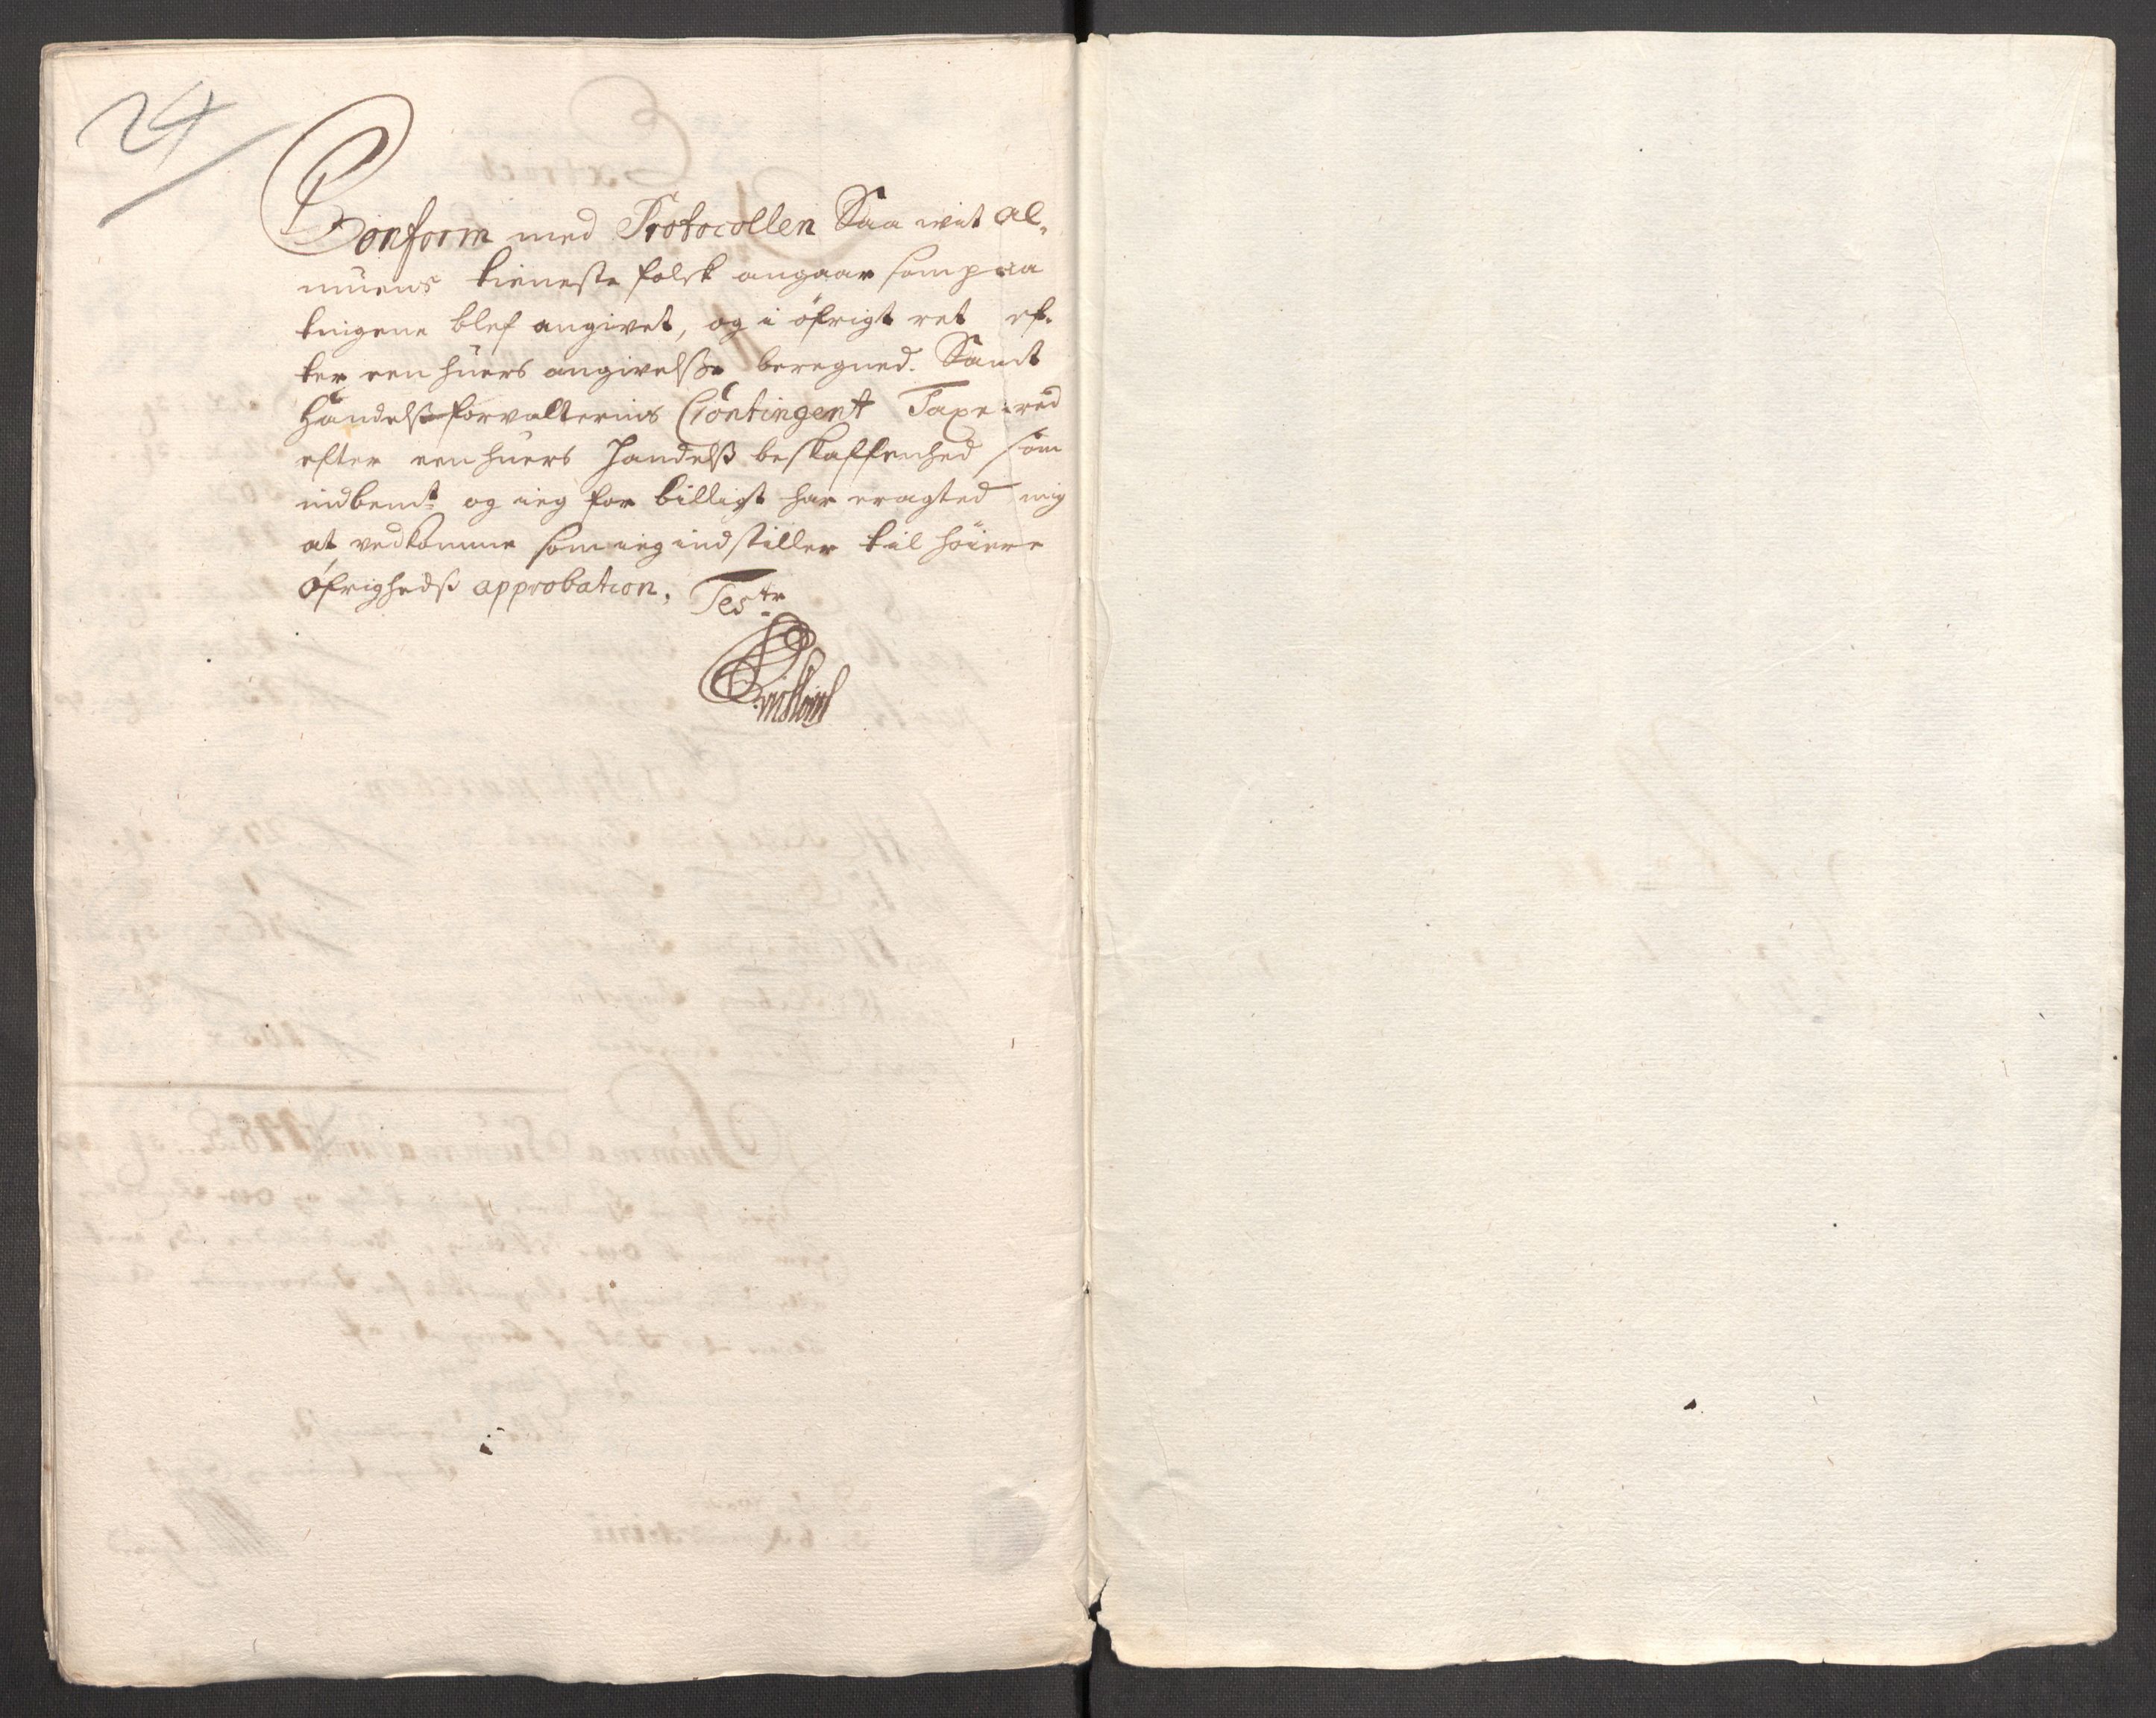 24
Conform med Protocollen Saa wit Al-
muens tieneste folck angaar som paa
tingene blef angivet, og i öfrigt ret ef-
ter een huers angivelsse beregned. Samt
handelsforvalternis Contingent Taxered
efter een huers Handelß beskaffenhed som
indbemt og ieg for billigt har eragted mig
at vedkomme som ieg indstiller til höiere
Öfrigheds approbation, Teste